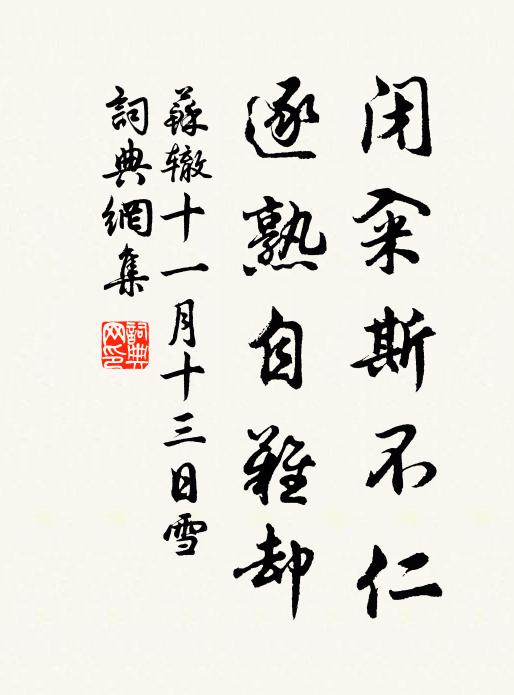 闭籴斯不仁
逐熟自難却
蘇辙十一月十三日雪
詞典網集
詞典网印